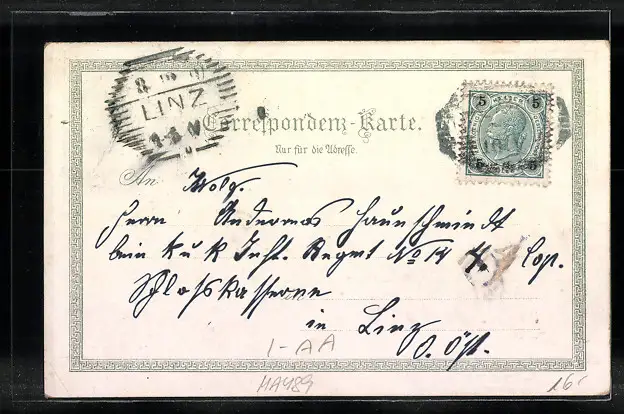 8
LINZ
Correspondenz-Karte.
Nur für die Adresse.
5 5
5 5
An Wolg.
Herrn Andernas Haunschmiedt
beim k u k Inft. Regmt No 14 4. Cop.
Schloßkasserne
in Linz
O. Öst.
1-AA
MA489
16